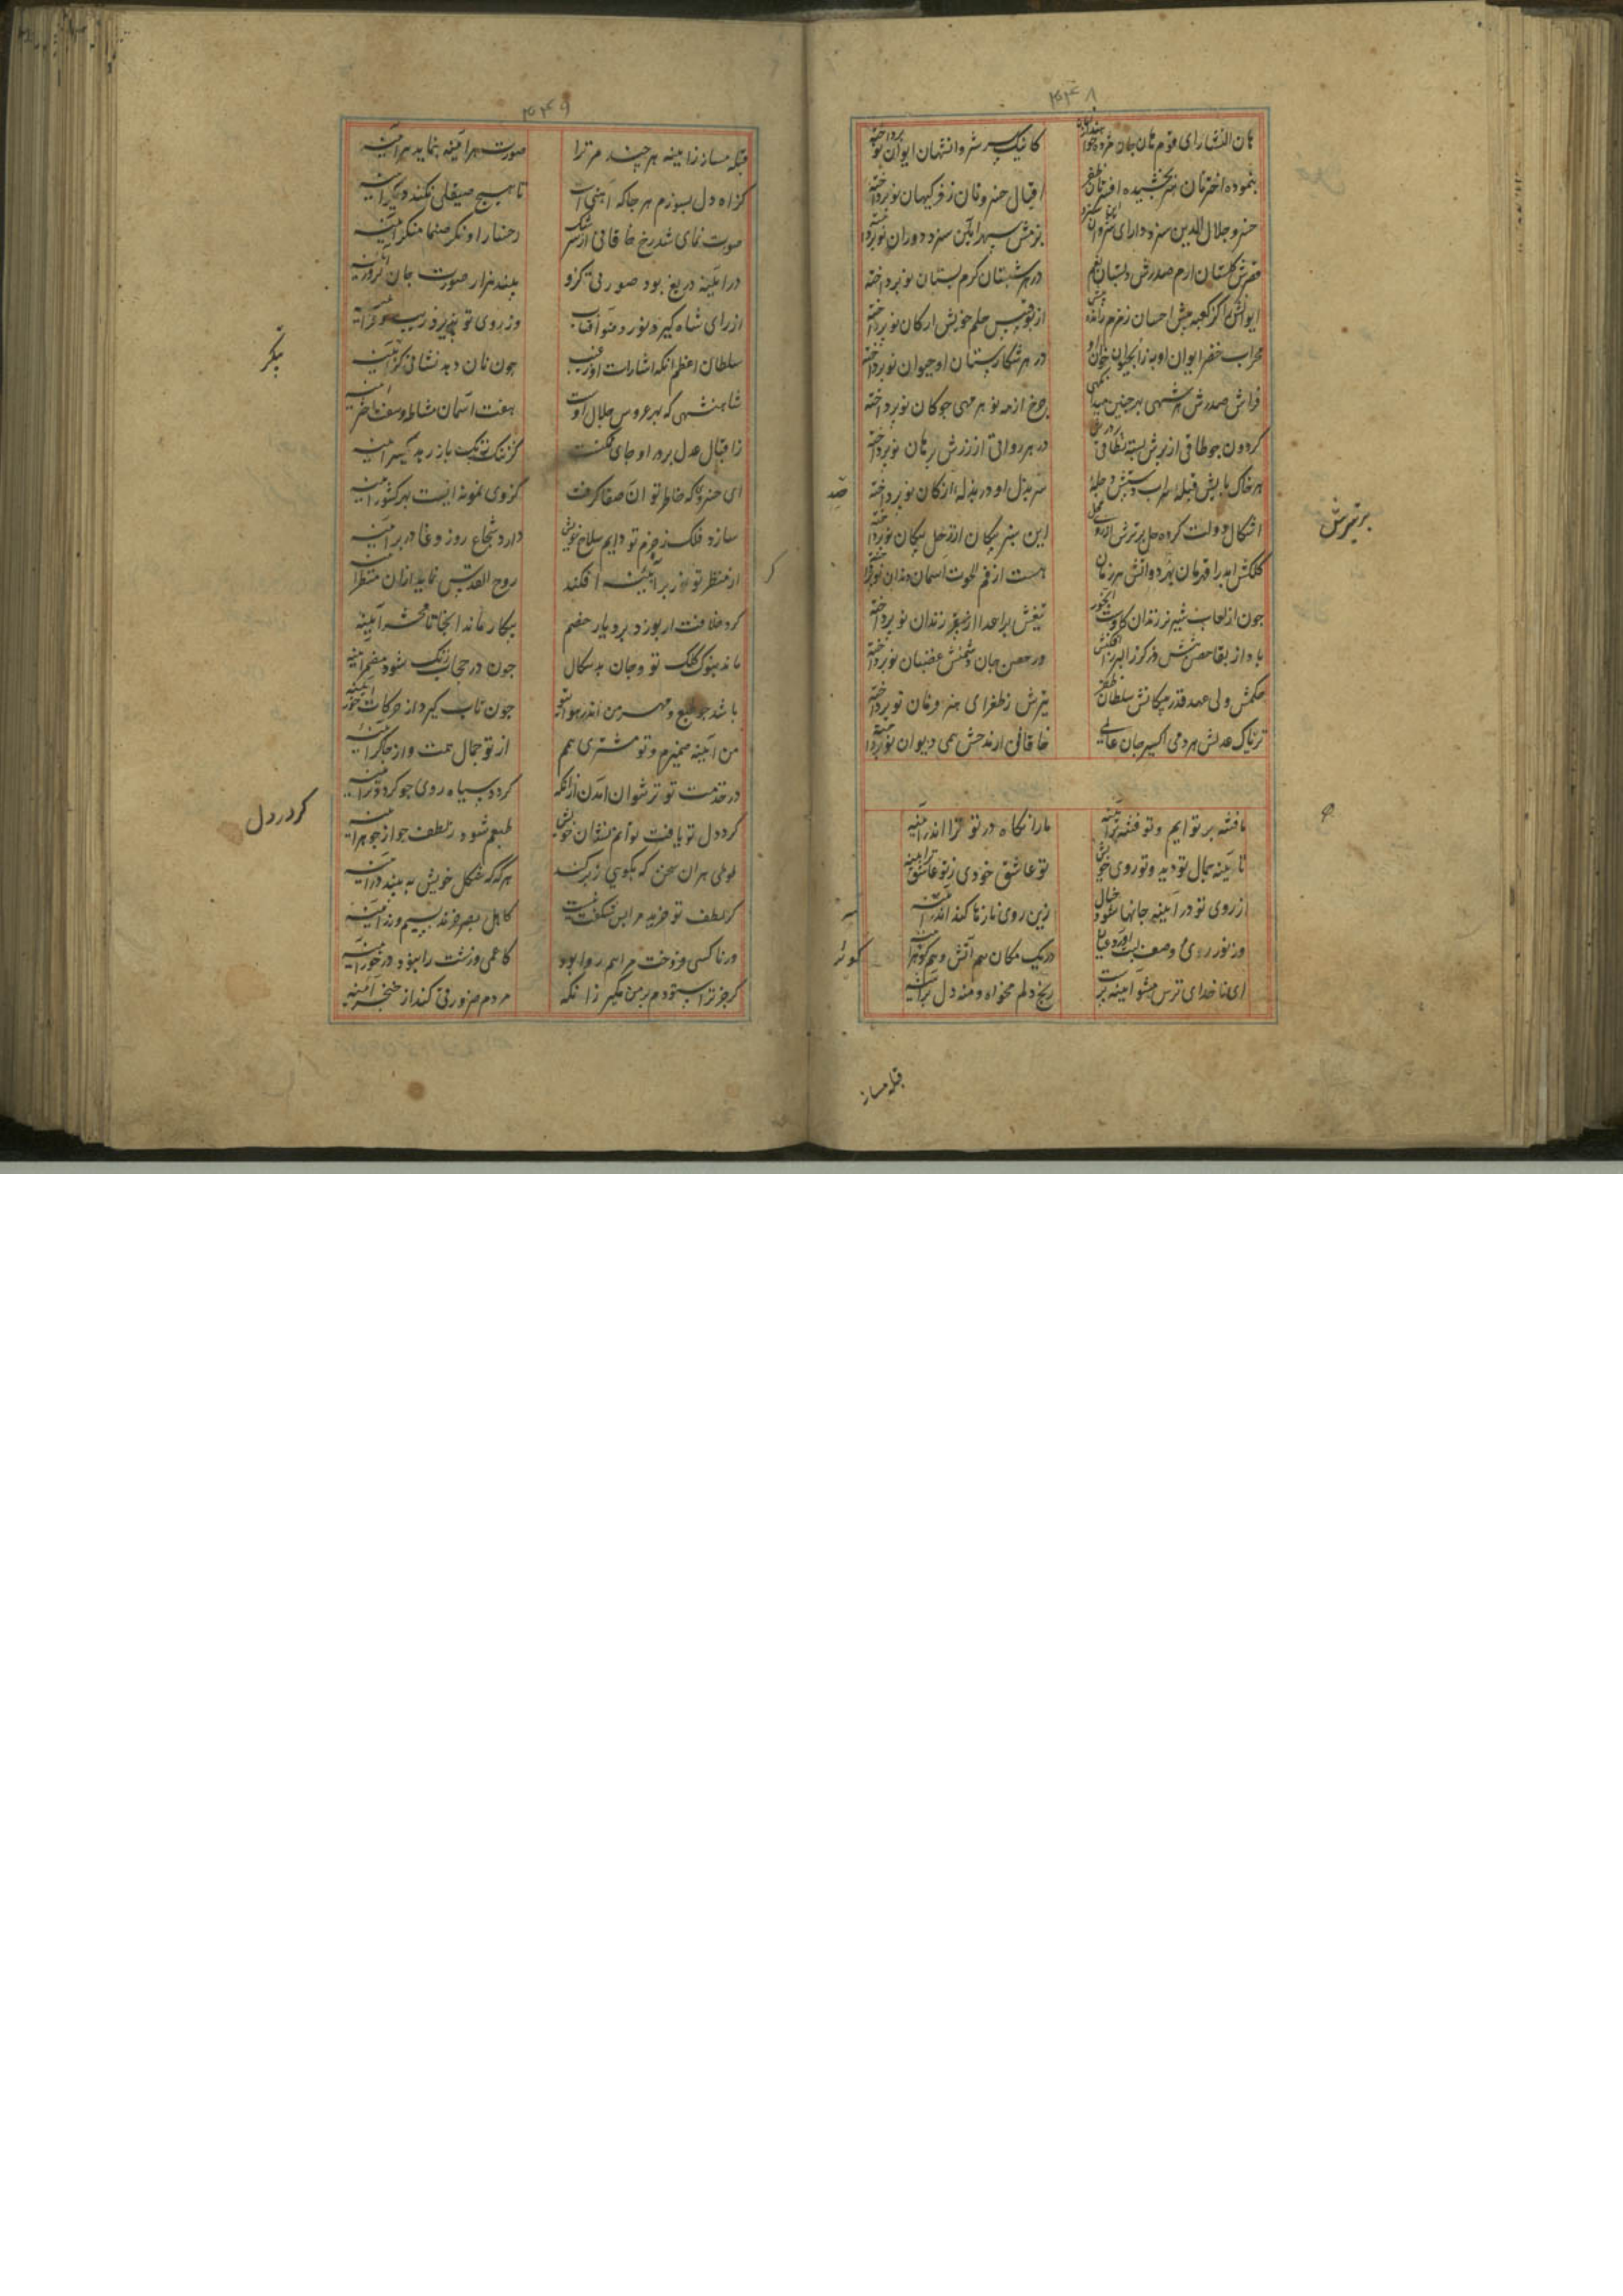 ۴۴۸
هان الشار ای قوم هان جان مژده خواه
کانیک سر شروانشهان ایوان نو پرداخته
بنموده اختر نان هنر بخشیده افسر نان
اقبال خسرو نان ز فر کیهان نو پرداخته
خسرو جلال الدین سزد دارای شروان
بزمش سپهر آئین سزد دوران نو پرداخته
قصرش گلستان ارم صدرش دبستان
در هر شبستان کرم بستان نو پرداخته
ایوانش را کز کعبه بیش احسان زمزم رانده
از بوقبیس حلم خویش ارکان نو پرداخته
محراب خضر ایوان او به ز آبحیوان خوان او
در هر شکارستان او حیوان نو پرداخته
فراش صدرش هر شهی بهر چنین میدانگهی
چرخ از مه نو هر مهی چوکان نو پرداخته
کردون چو طاقی از برش بسته نطاقی
در هر رواقی از زرش برهان نو پرداخته
هر خاک پایش قبله
سر بذل او در بذله از کان نو پرداخته
اشکال دولت کرده حل
این سبز پیکان از زحل پیکان نو پرداخته
کلکش ابد را قهرمان بهر دواتش هر زمان
هست از فم الحوت آسمان دندان نو پرداخته
چون از لعاب شیر نر زندان
تیغش برای اعدا از سقر زندان نو پرداخته
باد از بقا حصن
ور حصن جان دشمنش عضبان نو پرداخته
حکمش ولی عهد قدر پیکانش سلطان ظفر
تیرش ز طغرای هنر فرمان نو پرداخته
تریاک عدلش هر دمی اکسیر جان عالمی
خاقانی ار مدحش همی دیوان نو پرداخته
ما فتنه بر توایم و تو فتنه بر آینه
ما را نگاه در تو ترا اندر آینه
تا آینه جمال تو دید و تو روی خویش
تو عاشق خودی ز تو عاشق تر آینه
از روی تو در آینه جانها شود خیال
زین روی نازها کند اندر سر آینه
وز نور روی و صفت لب آورد عیان
در یک مکان هم آتش و هم کوثر آینه
ای ناخدای ترس مشو آینه پرست
رنج دلم مخواه و منه دل بر آینه
قبله مساز
بر تیرش
کوثر
۴۴۹
قبله مساز ز آینه هر چند مر ترا
صورت هر آینه بنماید هر آینه
کز آه دل بسوزم هر جا که آهنی است
تا هیچ صیقلی نکند دیگر آینه
صورت نمای شد رخ خاقانی از سرشک
رخسار او نگر صنما منگر آینه
در آینه دریغ بود صورتی کزو
بیند هزار صورت جان پرور آینه
از رای شاه گیرد نور و ضو آفتاب
وز روی تو پذیرد زیب و فر آینه
سلطان اعظم آنکه اشارات او ز غیب
چونان دهد نشانی کز پیکر آینه
شاهنشهی که بهر عروس جلال اوست
هفت آسمان مشاطه و هفت اختر آینه
ز اقبال عدل پرور او جای نی شکفت
کز ننک زنک باز رهد یکسر آینه
ای خسروی که خاطر تو آن صفا گرفت
کز وی نمونه ایست بهر کشور آینه
سازد فلک ز حزم تو دایم سلاح خویش
دارد شجاع روز وغا در بر آینه
از منظر تو نور بر آینه افکند
روح القدس نماید از آن منظر آینه
گرد خلافت ار بود در دیار خصم
بیکار ماند آنجا تا محشر آینه
ماند بنوک کلک تو و جان بدسگال
چون در حجاب زنگ شود مضمر آینه
باشد چو طبع و مهر من اندر هوای تو
چون تاب گیرد از حرکات خور آینه
من آینه ضمیرم و تو مشتری همم
از تو جمال همت و از چاکر آینه
در خدمت تو تر نتوان آمدن از آنکه
گردد سیاه روی چو گردد تر آینه
گردد دل تو یافت توانم نشان خویش
طبعم شود ز لطف چو از جوهر آینه
طوطی هر آن سخن که بگویی ز بر کند
هر گه که شکل خویش ببیند در آینه
گر لطف تو خرید مرا بس شگفت نیست
کاهل بصر خرند بسیم و زر آینه
ور ناکسی فروخت مرا هم روا بود
کاعمی و زشت را نبود در خور آینه
گر جز ترا ستودم بر من مگیر از آنکه
مردم ضرورتی کند از خنجر آینه
پیکر
کر در دل